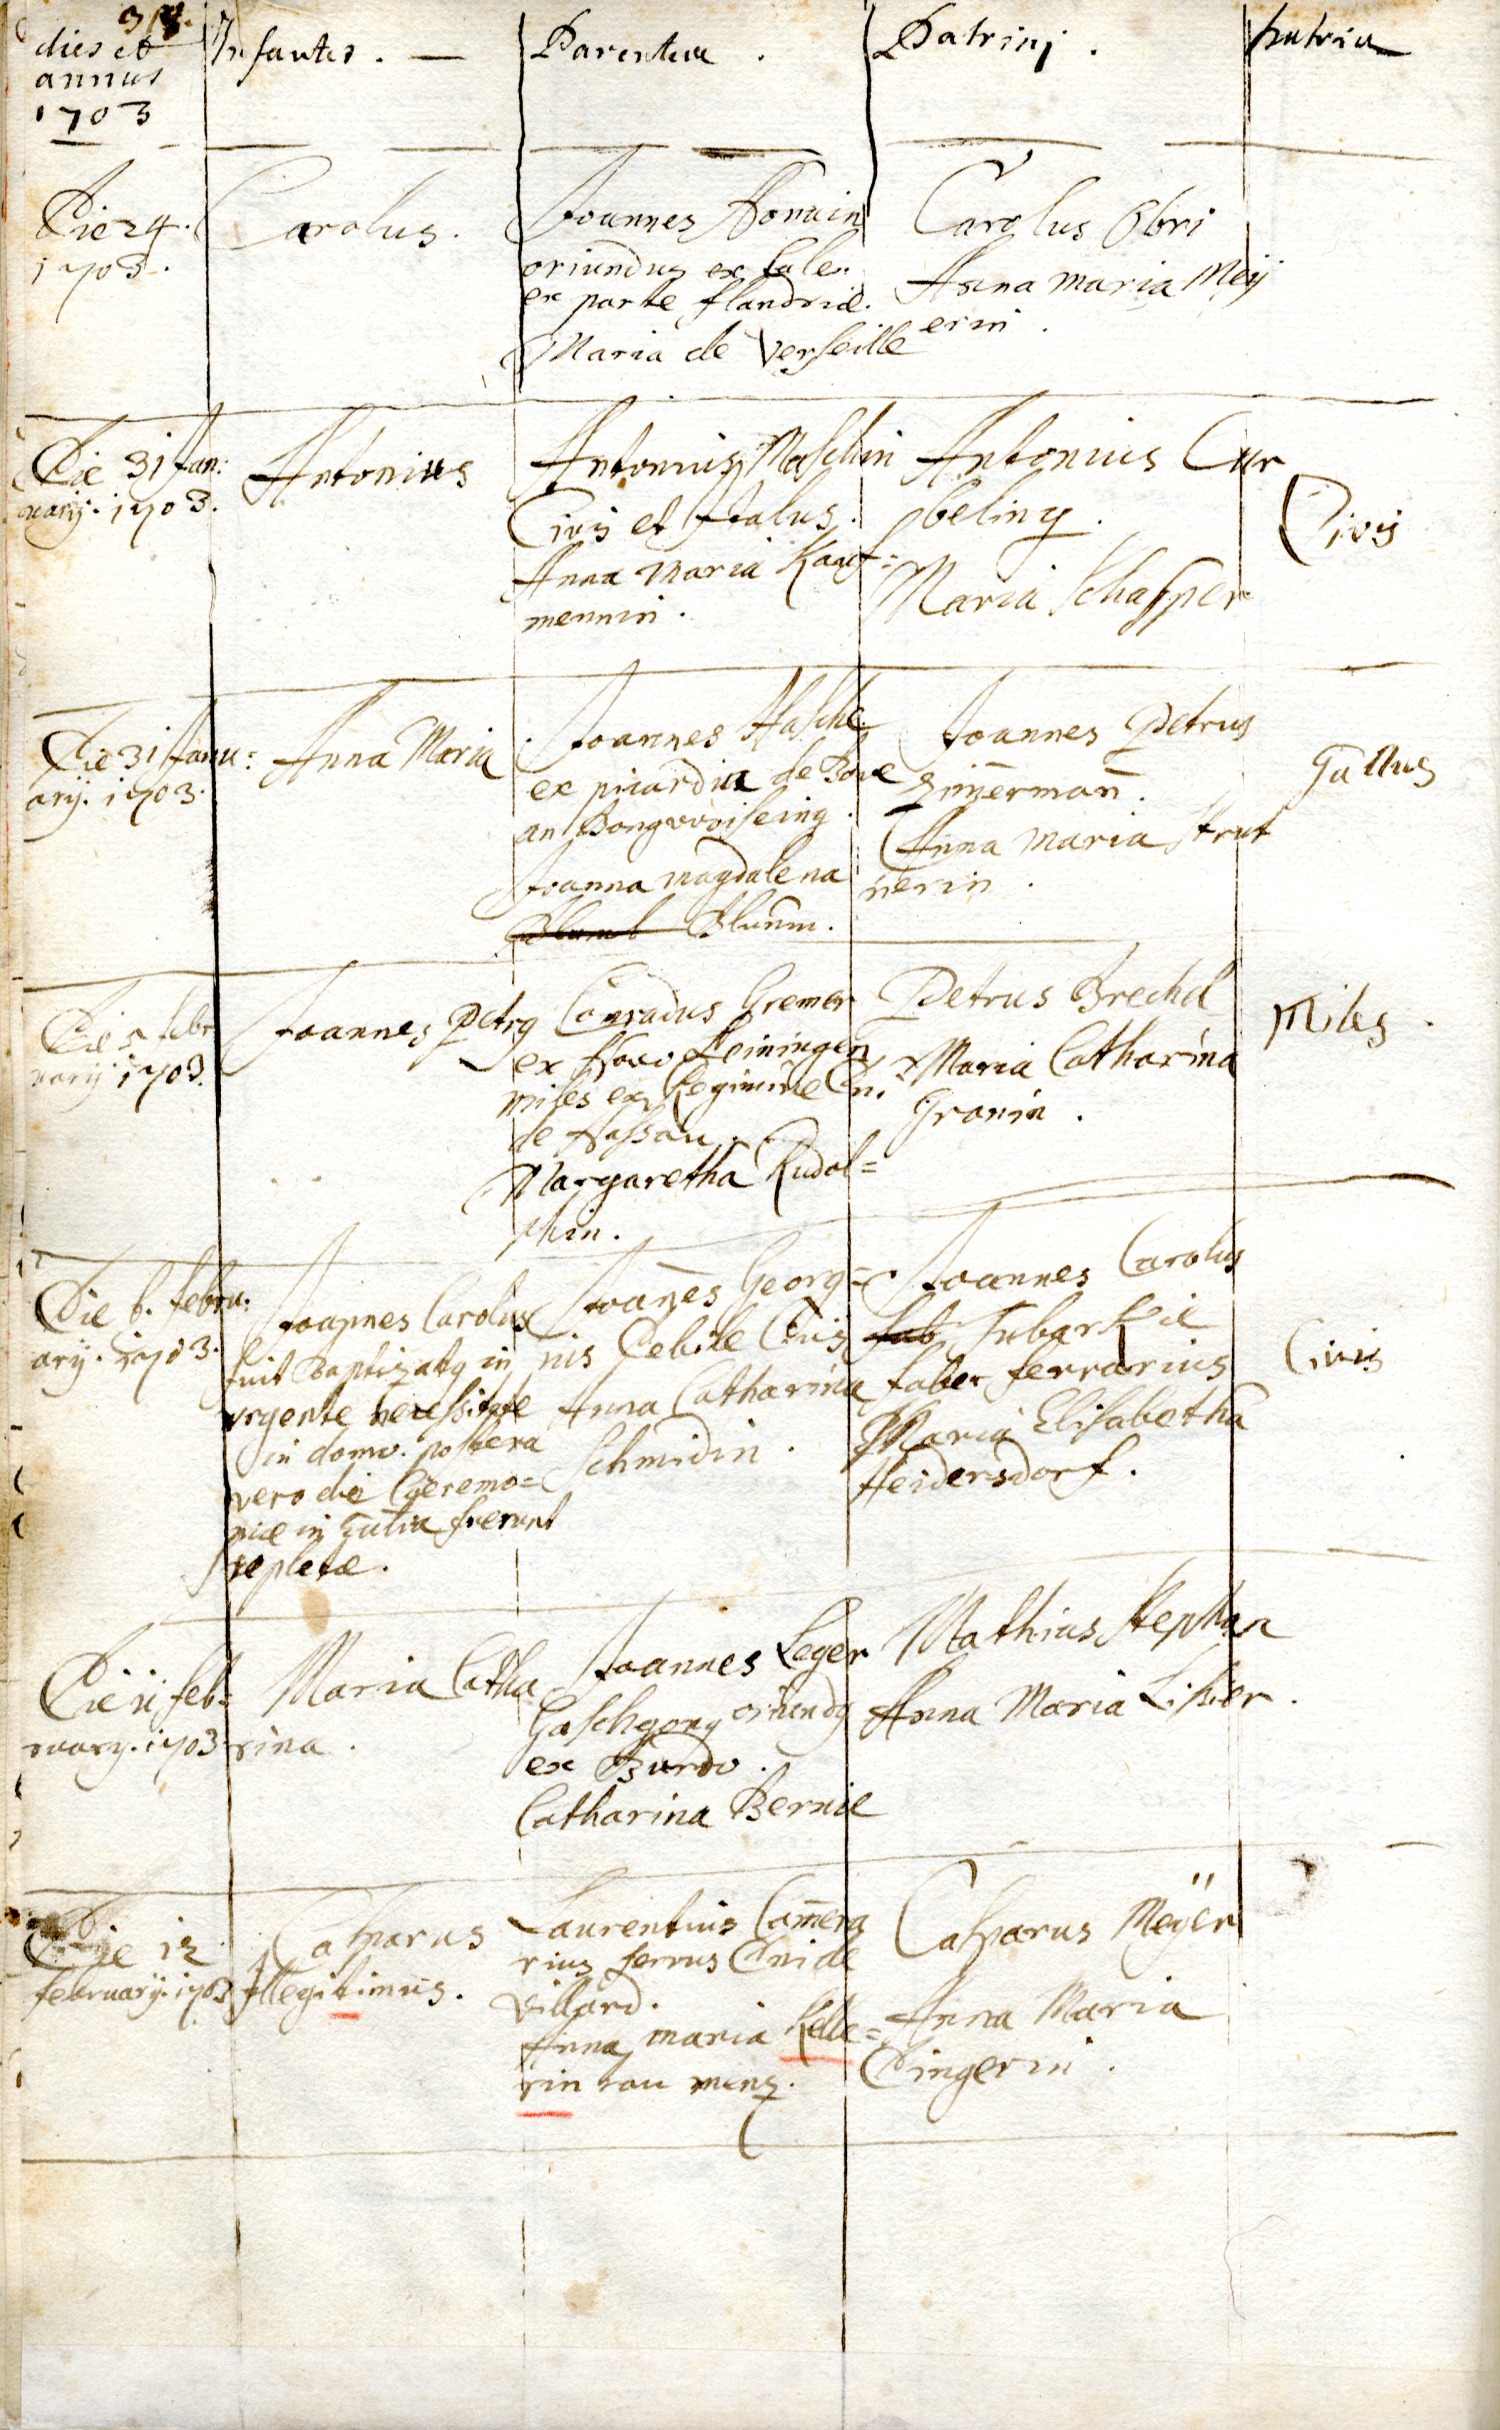 dies et
annus
1703
Infantes. —
Parentes.
Patrinj.
patria
Die 24.
1703.
Carolus.
Joannes Romain
oriundus ex
ex parte flandriæ.
Maria de Verseille
Carolus Obri
Anna Maria Meÿ
erin.
Die 31 Jan:
uarij. 1703.
Antonius
Antonius Maschin
Civis et Italus.
Anna Maria Kauf=
mennin.
Antonius Cur
beling.
Maria Schasper
Civis
Die 31 Janu:
arij. 1703.
Anna Maria
Joannes Hasche
ex picardia de Bove
an
Joanna Magdalena
Blumm.
Joannes Petrus
Zim̄erman̄.
Anna Maria Strut
nerin.
Gallus
Die 5 febr
uarij 1703.
Joannes Petrg
Conradus Gremer
ex Novo Leiningen
miles ex Regimine
de Nassau.
Margaretha Rudol=
phin.
Petrus Brechel
Maria Catharina
Gronin.
Miles.
Die 6. febru:
arij. 1703.
Joannes Carolus
fuit Baptizatg in
urgente necessitate
in domo. postera
vero die Cæremo=
niæ in fuerunt
repletæ.
Joan̄es Georg=
nis Civis
Anna Catharina
Schmidin.
Joannes Carolus
faber ferrarius
Maria Elisabetha
Heidersdorf.
Civis
Die 11 feb=
ruary. 1703
Maria Catha
rina.
Joannes Leger
oriundg
ex Burdo.
Catharina Bernie
Mathias Stephan
Anna Maria
Die 12
february. 1703
Casparus
Illegitimus.
Laurentius Cam̄era
rius
Villard.
Anna Maria Kelle=
rin
Casparus Meÿer
Anna Maria
Dingerin.